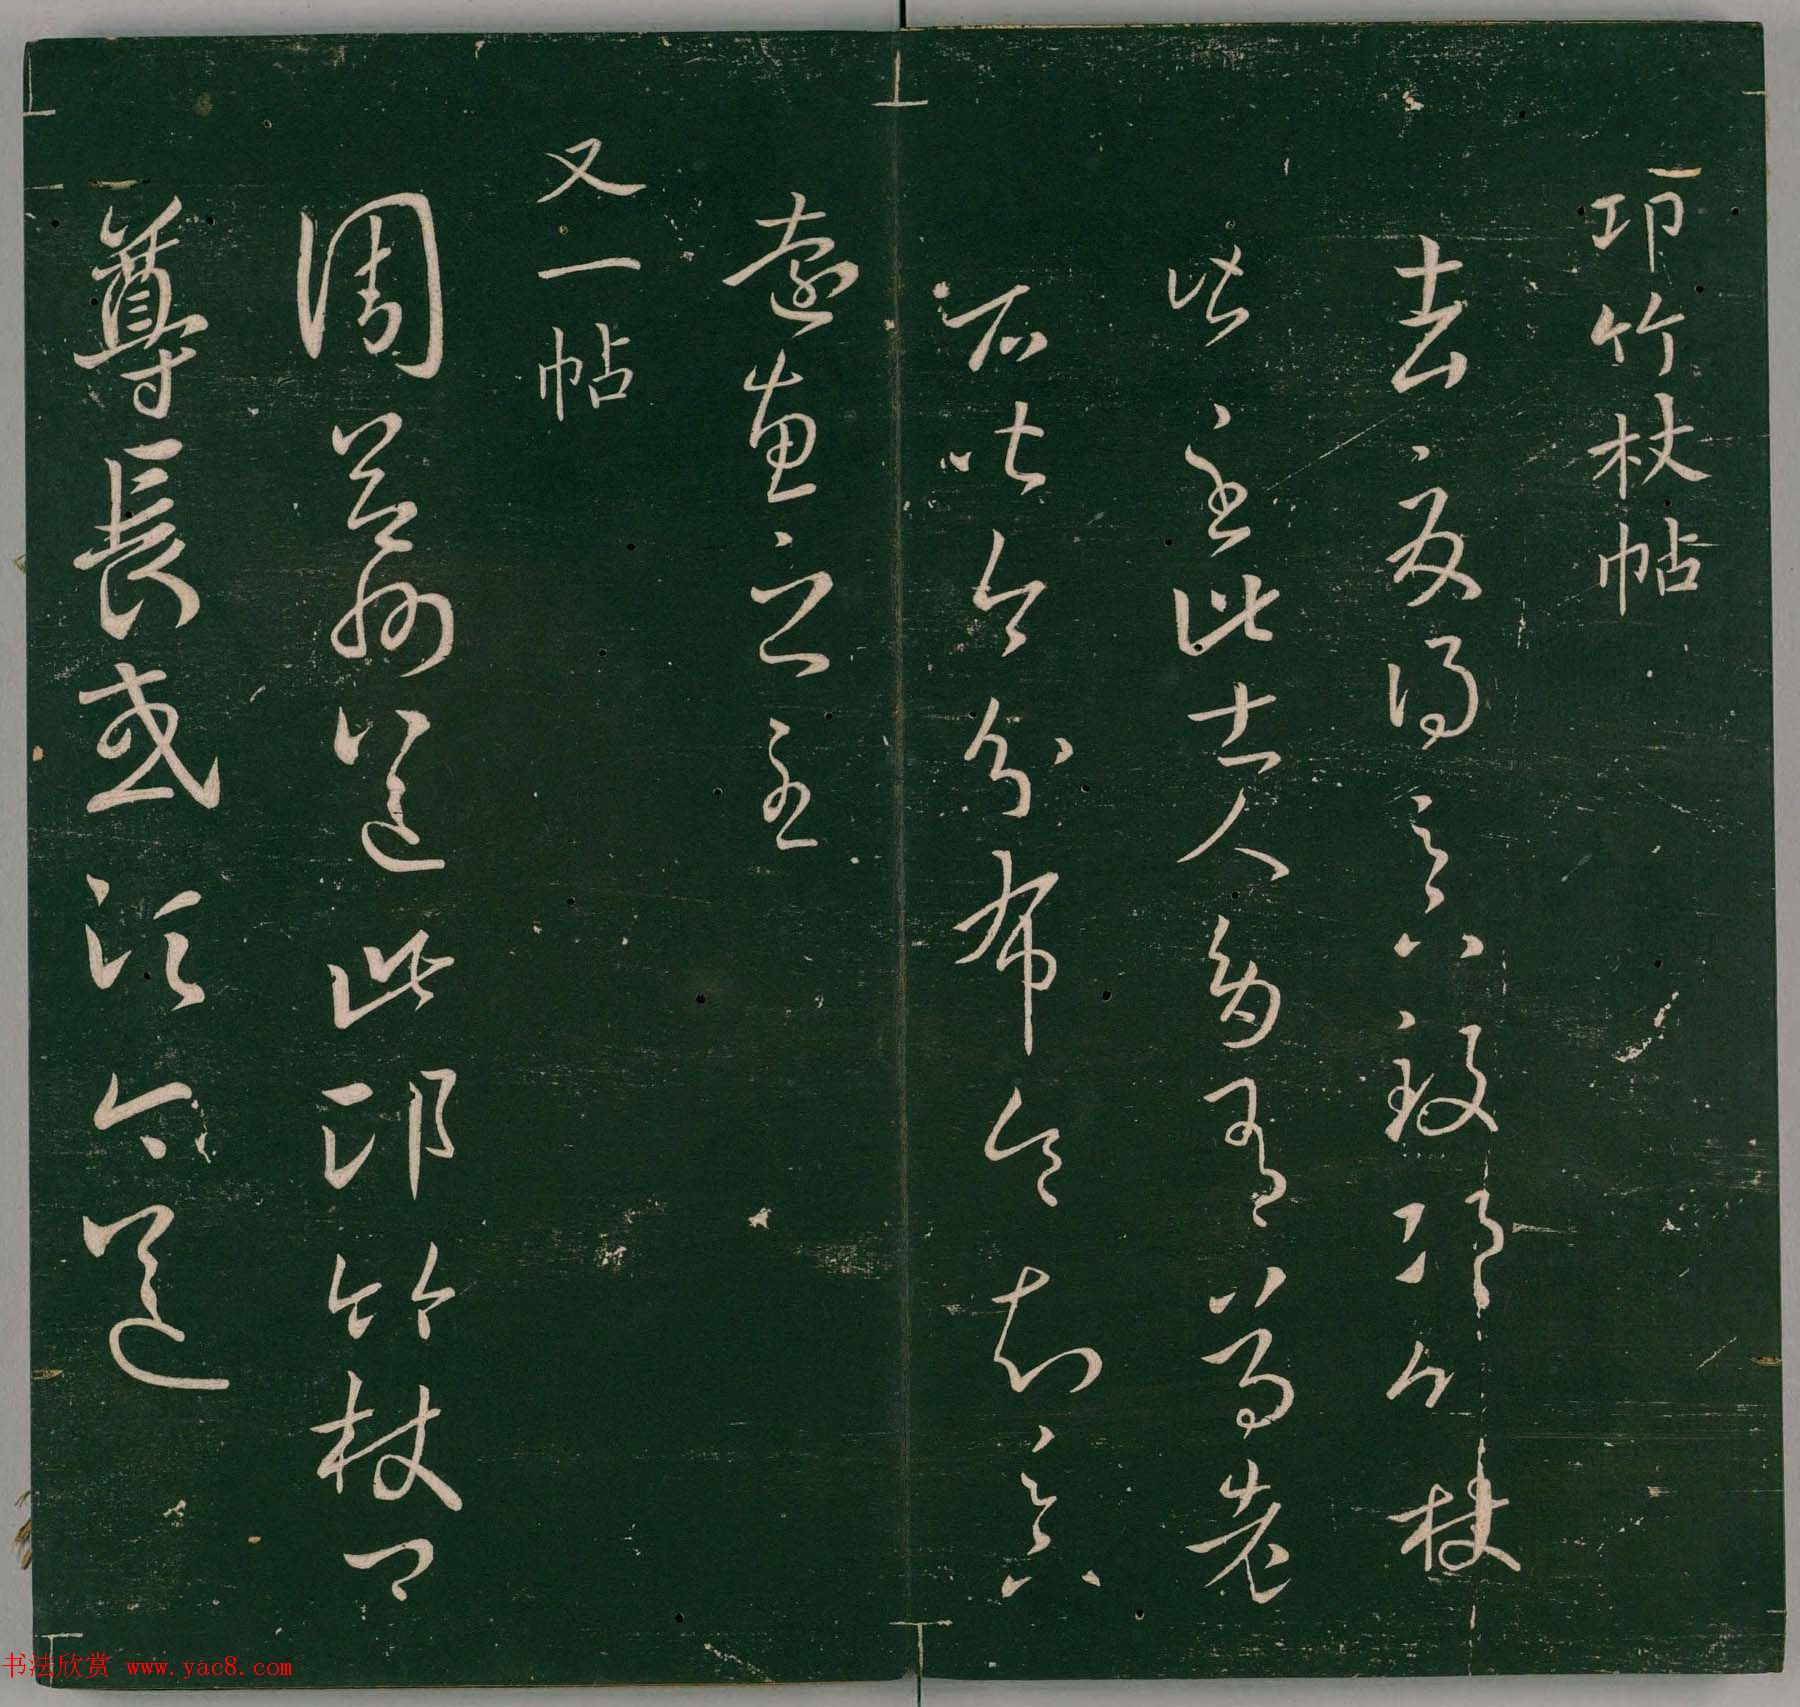 邛竹杖帖
去夏得足下致邛竹杖
皆至此士人多有尊老
者皆即分布令知足下
遠惠之至
又一帖
周益州送此邛竹杖卿
尊長或須今送
书法欣赏 www.yac8.com